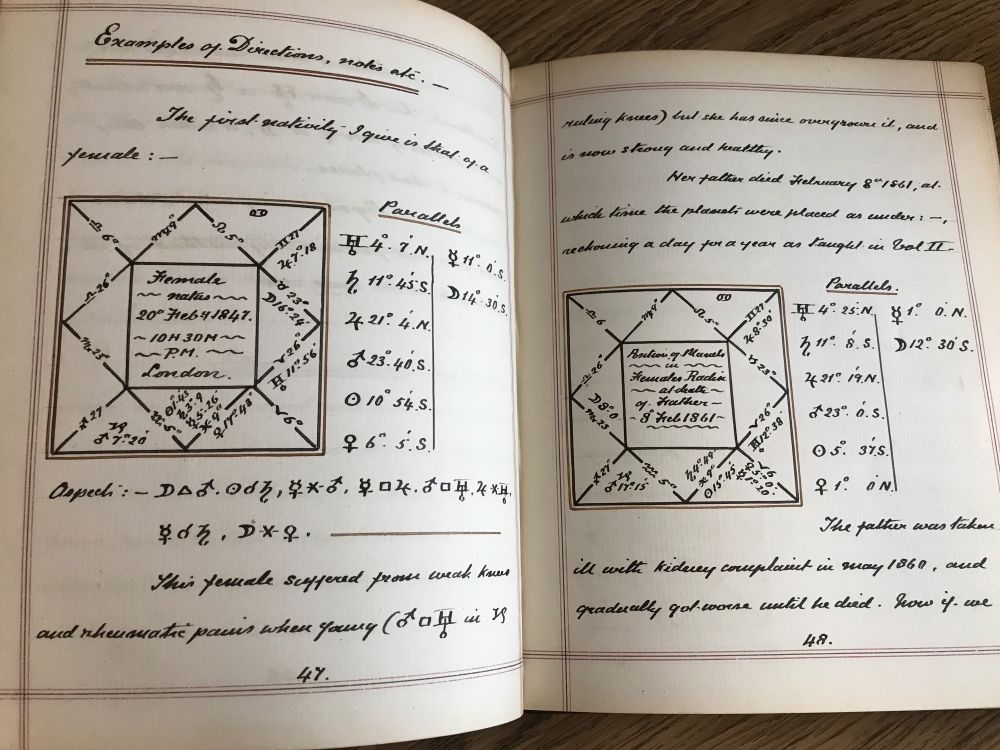 Examples of Directions, notes etc. —
The first nativity I give is that of a
female : —
♎ 6°
♏ 9°
♌ 5°
♊ 27
♃ 7°. 18
♎ 26°
♉ 23°
☽ 16° 24'
Female
natus
20° Feb 1847.
10 H 30 M
P.M.
London.
♏ 25
♈ 26°
♅ 11°. 56'
♐ 27
♂ 7° 20'
♑
♒ 5°
♓ 9°
♀ 17° 42'
♈ 6°
Parallels
♅ 4°. 7'. N.
☿ 11°. 0'. S.
♄ 11°. 45'. S.
☽ 14°. 30'. S.
♃ 21°. 4'. N.
♂ 23°. 40'. S.
☉ 10° 54'. S.
♀ 6°. 5'. S.
Aspects : — ☽ △ ♂. ☉ ☌ ♄, ☿ ⚹ ♂, ☿ □ ♃. ♂ □ ♅. ♃ ⚹ ♅.
☿ ☌ ♄, ☽ ⚹ ♀.
This female suffered from weak knees
and rheumatic pains when young (♂ □ ♅ in ♑
47.
ruling knees) but she has since overgrown it, and
is now strong and healthy.
Her father died February 8th 1861, at
which time the planets were placed as under : —,
reckoning a day for a year as taught in Vol II —
♎ 6
♏ 9
♌ 5°
♊ 27
♃ 8° 30'
♎ 26°
♉ 23°
Position of Planets
in
Females Radix
at death
of Father
8 Feb 1861
☽ 8° 0
♏ 25
♈ 26°
♅ 12°. 38'
♐ 27
♑
♂ 17° 15
♒ 5°
♄ 4° 49'
♓ 9°
☉ 15° 45'
♈ 6
Parallels :
♅ 4°. 25' N.
☿ 1°. 0'. N.
♄ 11°. 8'. S.
☽ 12°. 30'. S.
♃ 21° 19'. N.
♂ 23°. 0'. S.
☉ 5°. 37'. S.
♀ 1°. 0' N.
The father was taken
ill with kidney complaint in may 1860, and
gradually got worse until he died. Now if we
48.